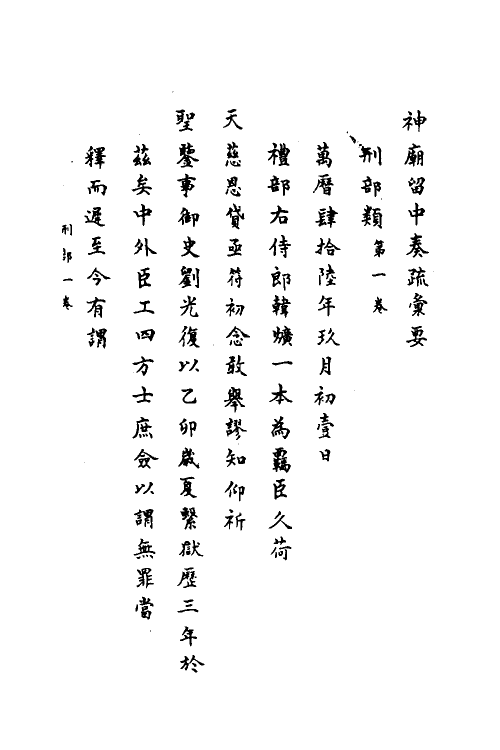 神廟留中奏疏彙要
刑部類第一卷
萬曆肆拾陸年玖月初壹日
禮部右侍郎韓爌一本為羈臣久荷
天慈恩貸亟符初念敢舉謬知仰祈
聖鑒事御史劉光復以乙卯歲夏繫獄歷三年於
茲矣中外臣工四方士庶僉以謂無罪當
釋而遲至今有謂
刑部一卷